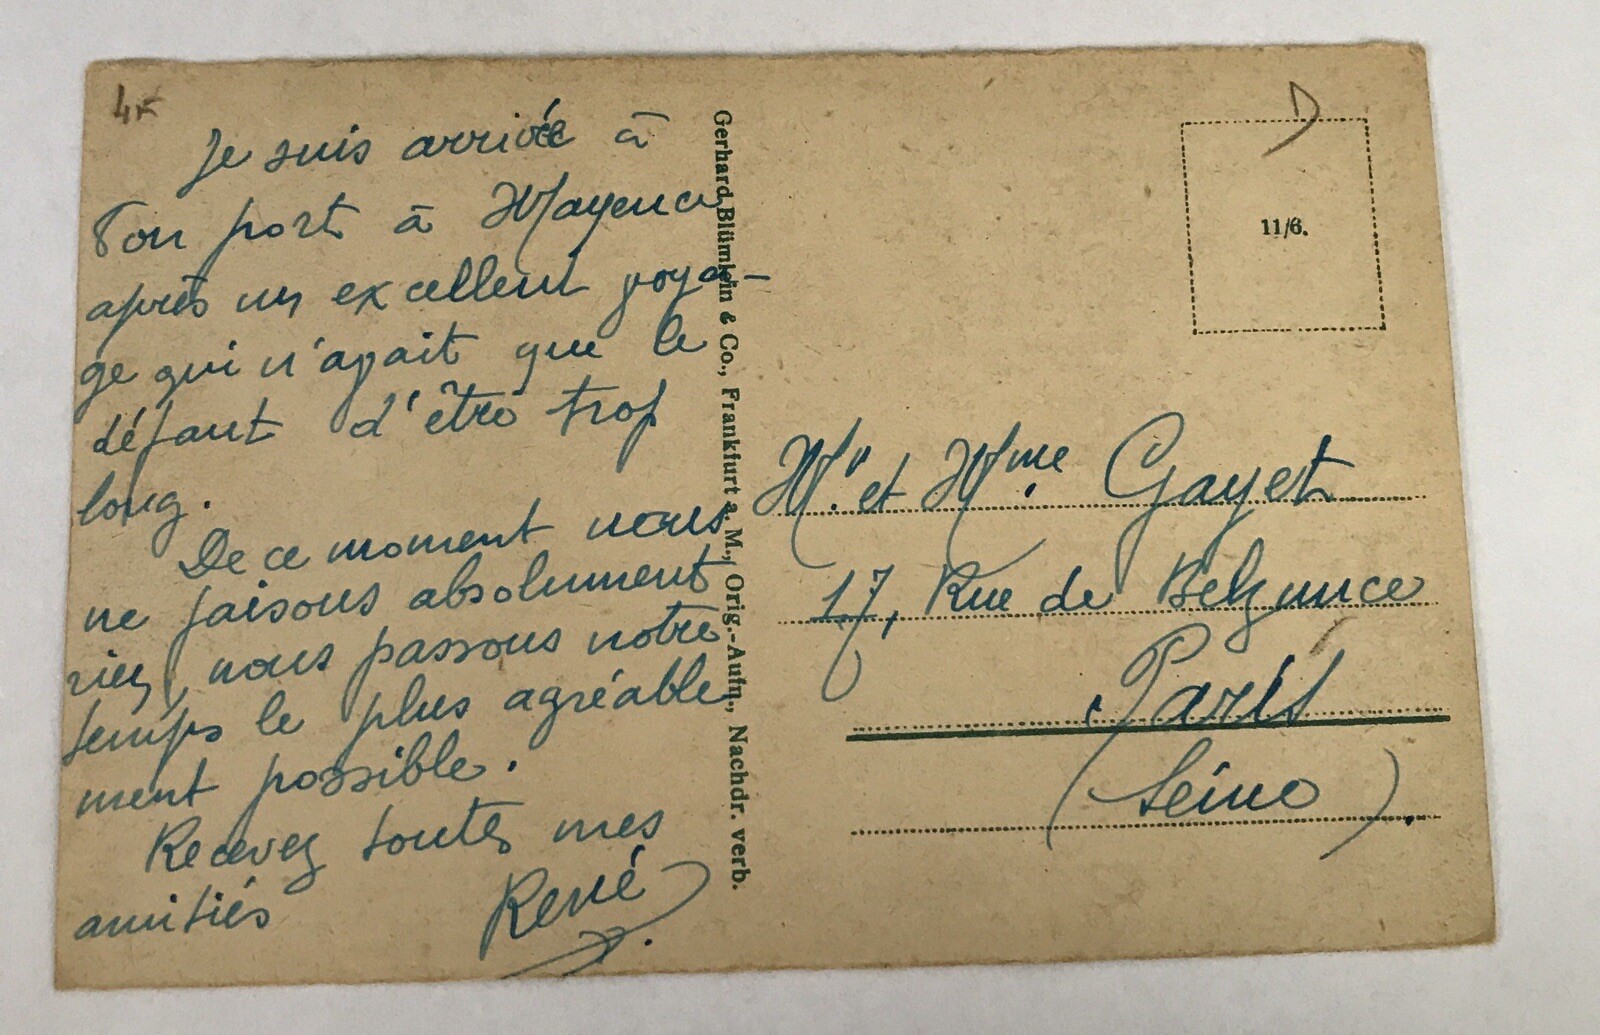 4F
Je suis arrivée à
bon port à Mayence
après un excellent voya-
ge qui n'avait que le
défaut d'être trop
long.
De ce moment nous
ne faisons absolument
rien, nous passons notre
temps le plus agréable
ment possible.
Recevez toutes mes
amitiés
René
Gerhard Blümlein & Co., Frankfurt a. M., Orig.-Aufn., Nachdr. verb.
11/6.
Mr et Mme Gayet
17, Rue de Belzunce
Paris
(Seine).